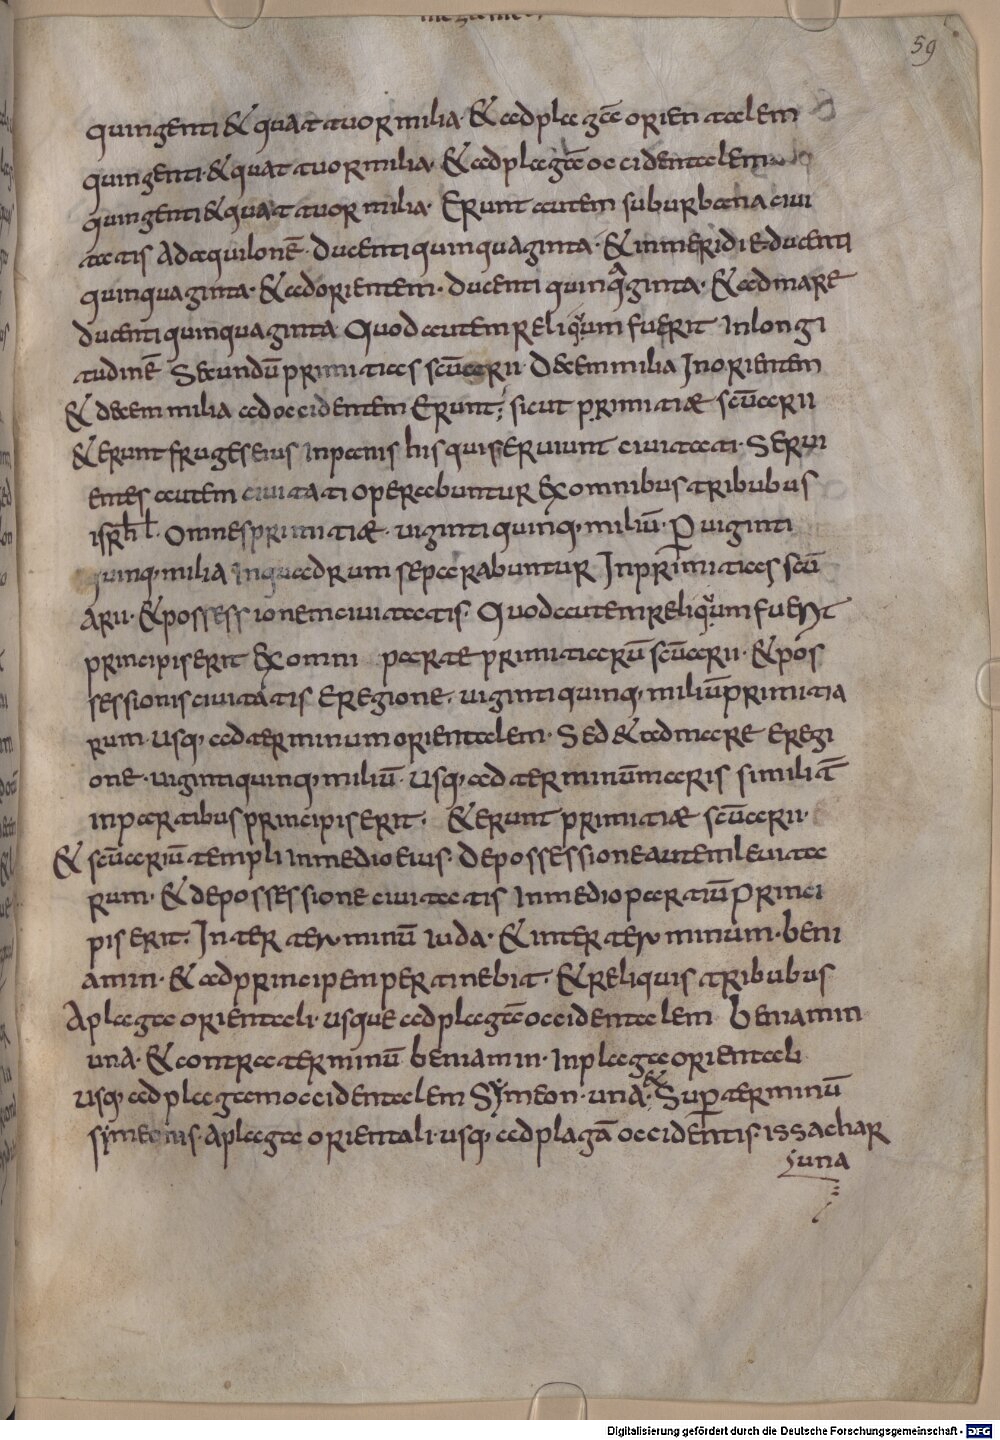 59
quingenti & quattuor milia· & ad plagā orientalem
quingenti· & quattuor milia· & ad plagā occidentalem
quingenti & quattuor milia· Erunt autem suburbana civi
tatis Ad aquilonē· Ducenti quinquaginta· & in meridie ducenti
quinquaginta· & ad orientem· Ducenti quinqaginta· & ad mare
ducenti quinquaginta Quod autem reliqum fuerit In longi
tudinē Secundū primitias scūarii· Decem milia In orientem
& decem milia ad occidentem Erunt; sicut primitiæ scūarii
& erunt fruges eius In panis his qui serviunt civitati· Servi
entes autem civitati operabuntur Ex omnibus tribubus
isrhl· Omnes primitiæ· viginti quinq; miliū· P viginti
quinq; milia In quadrum separabuntur In primitias scū
arii· & possessionem civitatis· Quod autem reliqum fuerit
principis erit Ex omni parte primitiarū scūarii· & pos
sessionis civitatis E regione· viginti quinq; miliū primitia
rum usq; ad terminum orientalem· Sed & ad mare E regi
one· viginti quinq; miliū· usq; ad terminū maris similit̄
in partibus principis erit· & erunt primitiæ scūarii·
& scūariū templi In medio eius· De possessione autem levita
rum· & de possessione civitatis In medio partiū Princi
pis erit· Inter terminū iuda· & inter terminum· beni
amin· & ad principem pertinebit· & reliquis tribubus
A plaga orientali· usque ad plagā occidentalem beniamin
una· & contra terminū beniamin· In plaga orientali
usq; ad plagam occidentalem Symeon· una· & Sup terminū
symeonis· A plaga orientali· usq; ad plagā occidentis· issachar
una
Digitalisierung gefördert durch die Deutsche Forschungsgemeinschaft - DFG